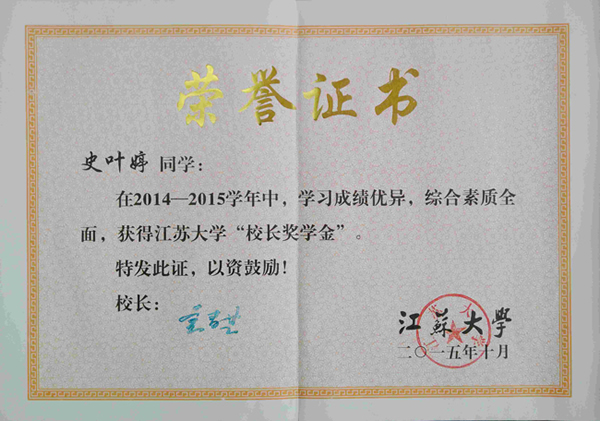 荣誉证书
史叶婷 同学：
在2014—2015学年中，学习成绩优异，综合素质全
面，获得江苏大学“校长奖学金”。
特发此证，以资鼓励！
校长：
江蘇大學
二〇一五年十月